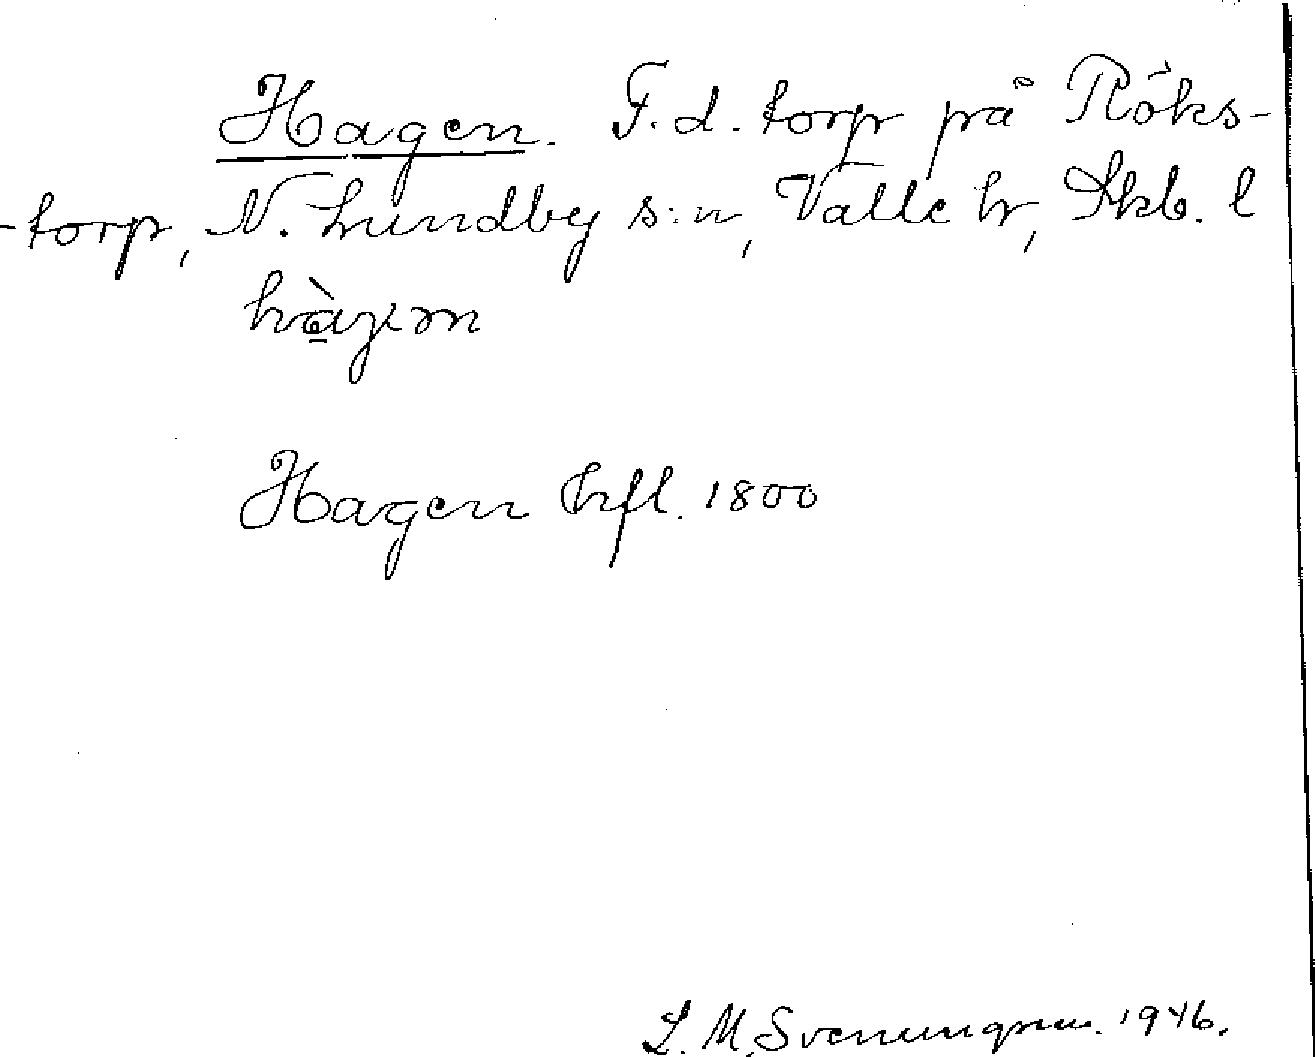 Hagen. F.d. torp på Röks-
-torp, N. Lundby s:n, Valle hr, Skb. l
Hagen hfl. 1800
L. M. Svenungsson. 1946.